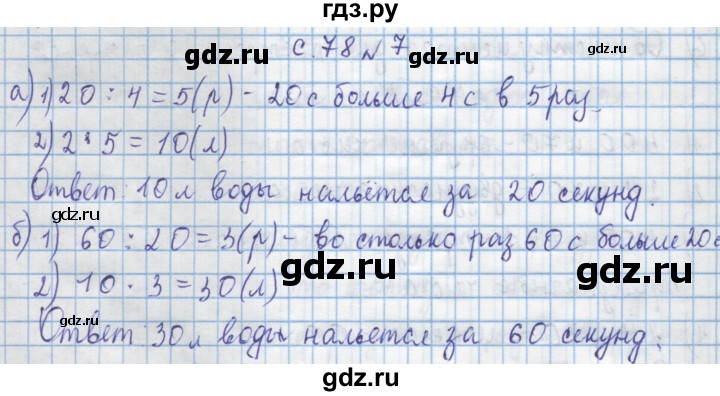 гдз.ру
с. 78 № 7
а) 1) 20 : 4 = 5 (р) - 20 с больше 4 с в 5 раз.
2) 2 · 5 = 10 (л)
Ответ: 10 л воды нальётся за 20 секунд.
б) 1) 60 : 20 = 3 (р) - во столько раз 60 с больше 20 с
2) 10 · 3 = 30 (л)
Ответ: 30 л воды нальется за 60 секунд.
gdz.ru
gdz.ru
gdz.ru
gdz.ru
gdz.ru
gdz.ru
gdz.ru
gdz.ru
gdz.ru
gdz.ru